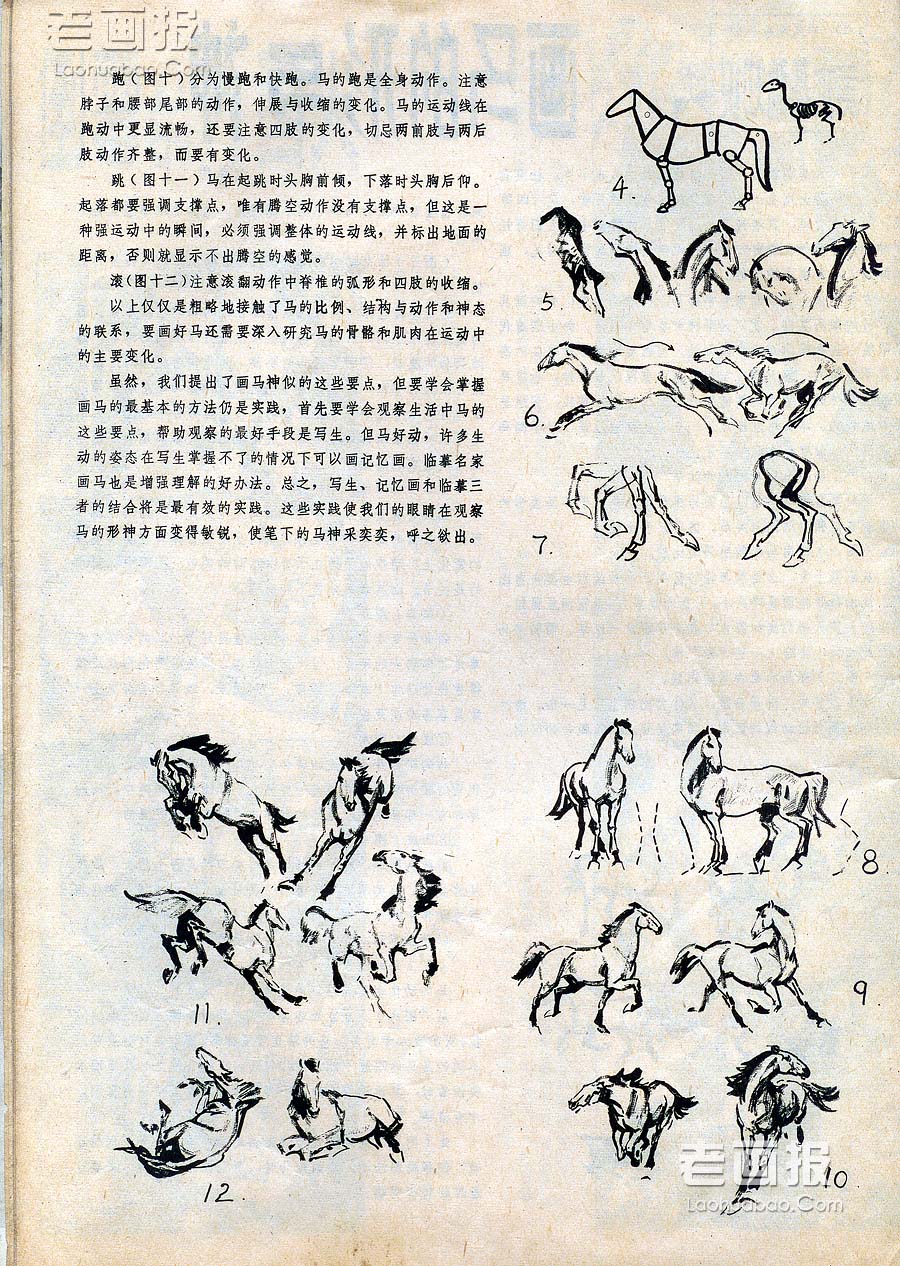 老画报
Laohuabao.Com
跑(图十)分为慢跑和快跑。马的跑是全身动作。注意
脖子和腰部尾部的动作，伸展与收缩的变化。马的运动线在
跑动中更显流畅，还要注意四肢的变化，切忌两前肢与两后
肢动作齐整，而要有变化。
跳(图十一)马在起跳时头胸前倾，下落时头胸后仰。
起落都要强调支撑点，唯有腾空动作没有支撑点，但这是一
种强运动中的瞬间，必须强调整体的运动线，并标出地面的
距离，否则就显示不出腾空的感觉。
滚(图十二)注意滚翻动作中脊椎的弧形和四肢的收缩。
以上仅仅是粗略地接触了马的比例、结构与动作和神态
的联系，要画好马还需要深入研究马的骨骼和肌肉在运动中
的主要变化。
虽然，我们提出了画马神似的这些要点，但要学会掌握
画马的最基本的方法仍是实践，首先要学会观察生活中马的
这些要点，帮助观察的最好手段是写生。但马好动，许多生
动的姿态在写生掌握不了的情况下可以画记忆画。临摹名家
画马也是增强理解的好办法。总之，写生、记忆画和临摹三
者的结合将是最有效的实践。这些实践使我们的眼睛在观察
马的形神方面变得敏锐，使笔下的马神采奕奕，呼之欲出。
4.
5.
6.
7.
8.
9.
11.
12.
10
老画报
Laohuabao.Com